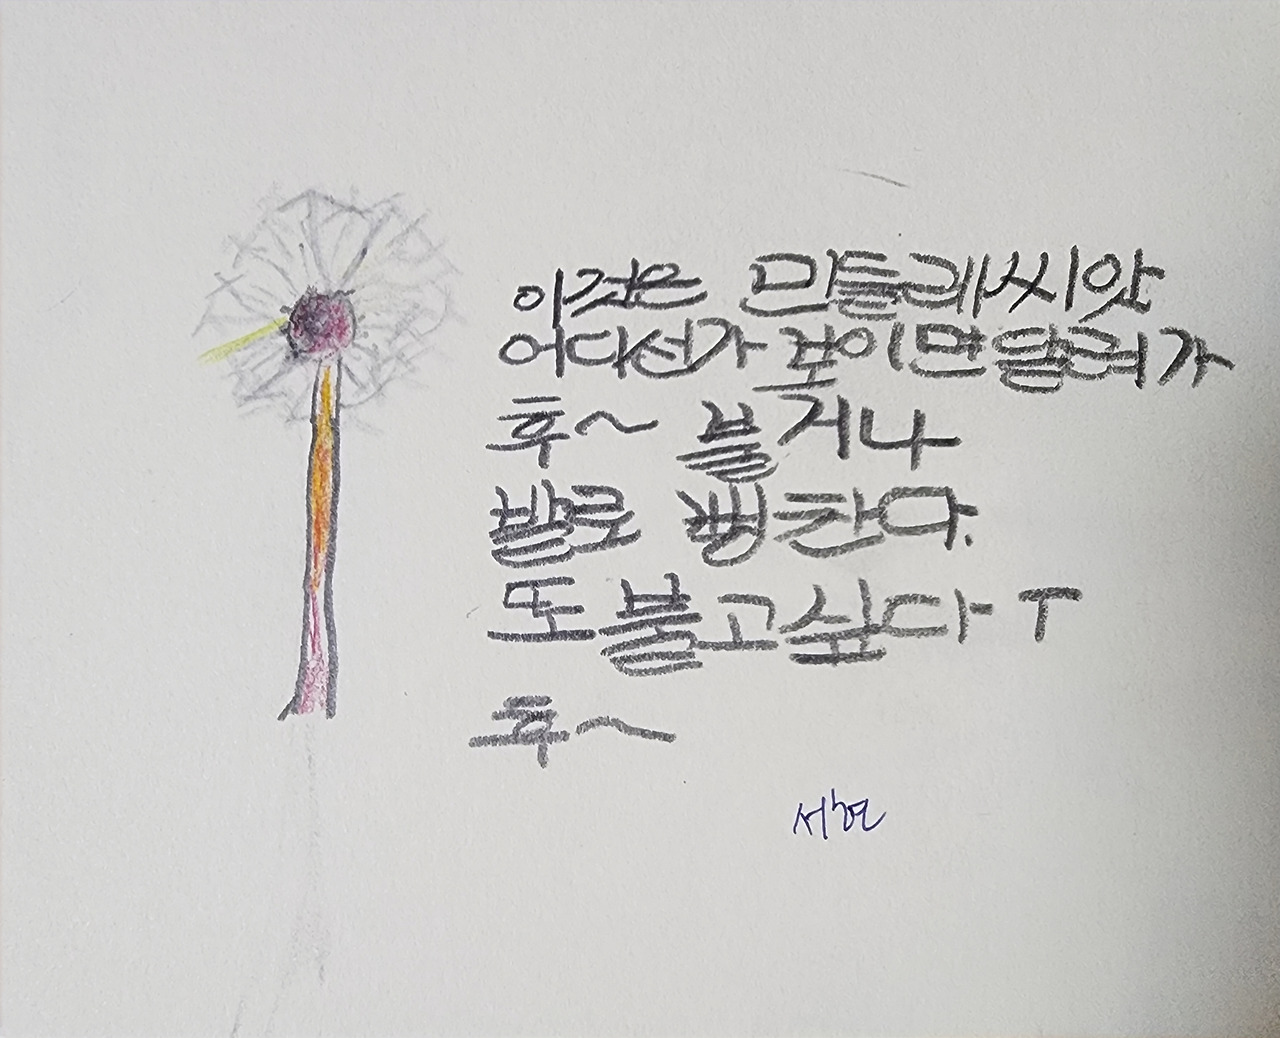 이것은 민들레씨앗
어디선가 보이면달려가
후~ 불거나
발로 뻥찬다.
또불고싶다 T
후~
서현